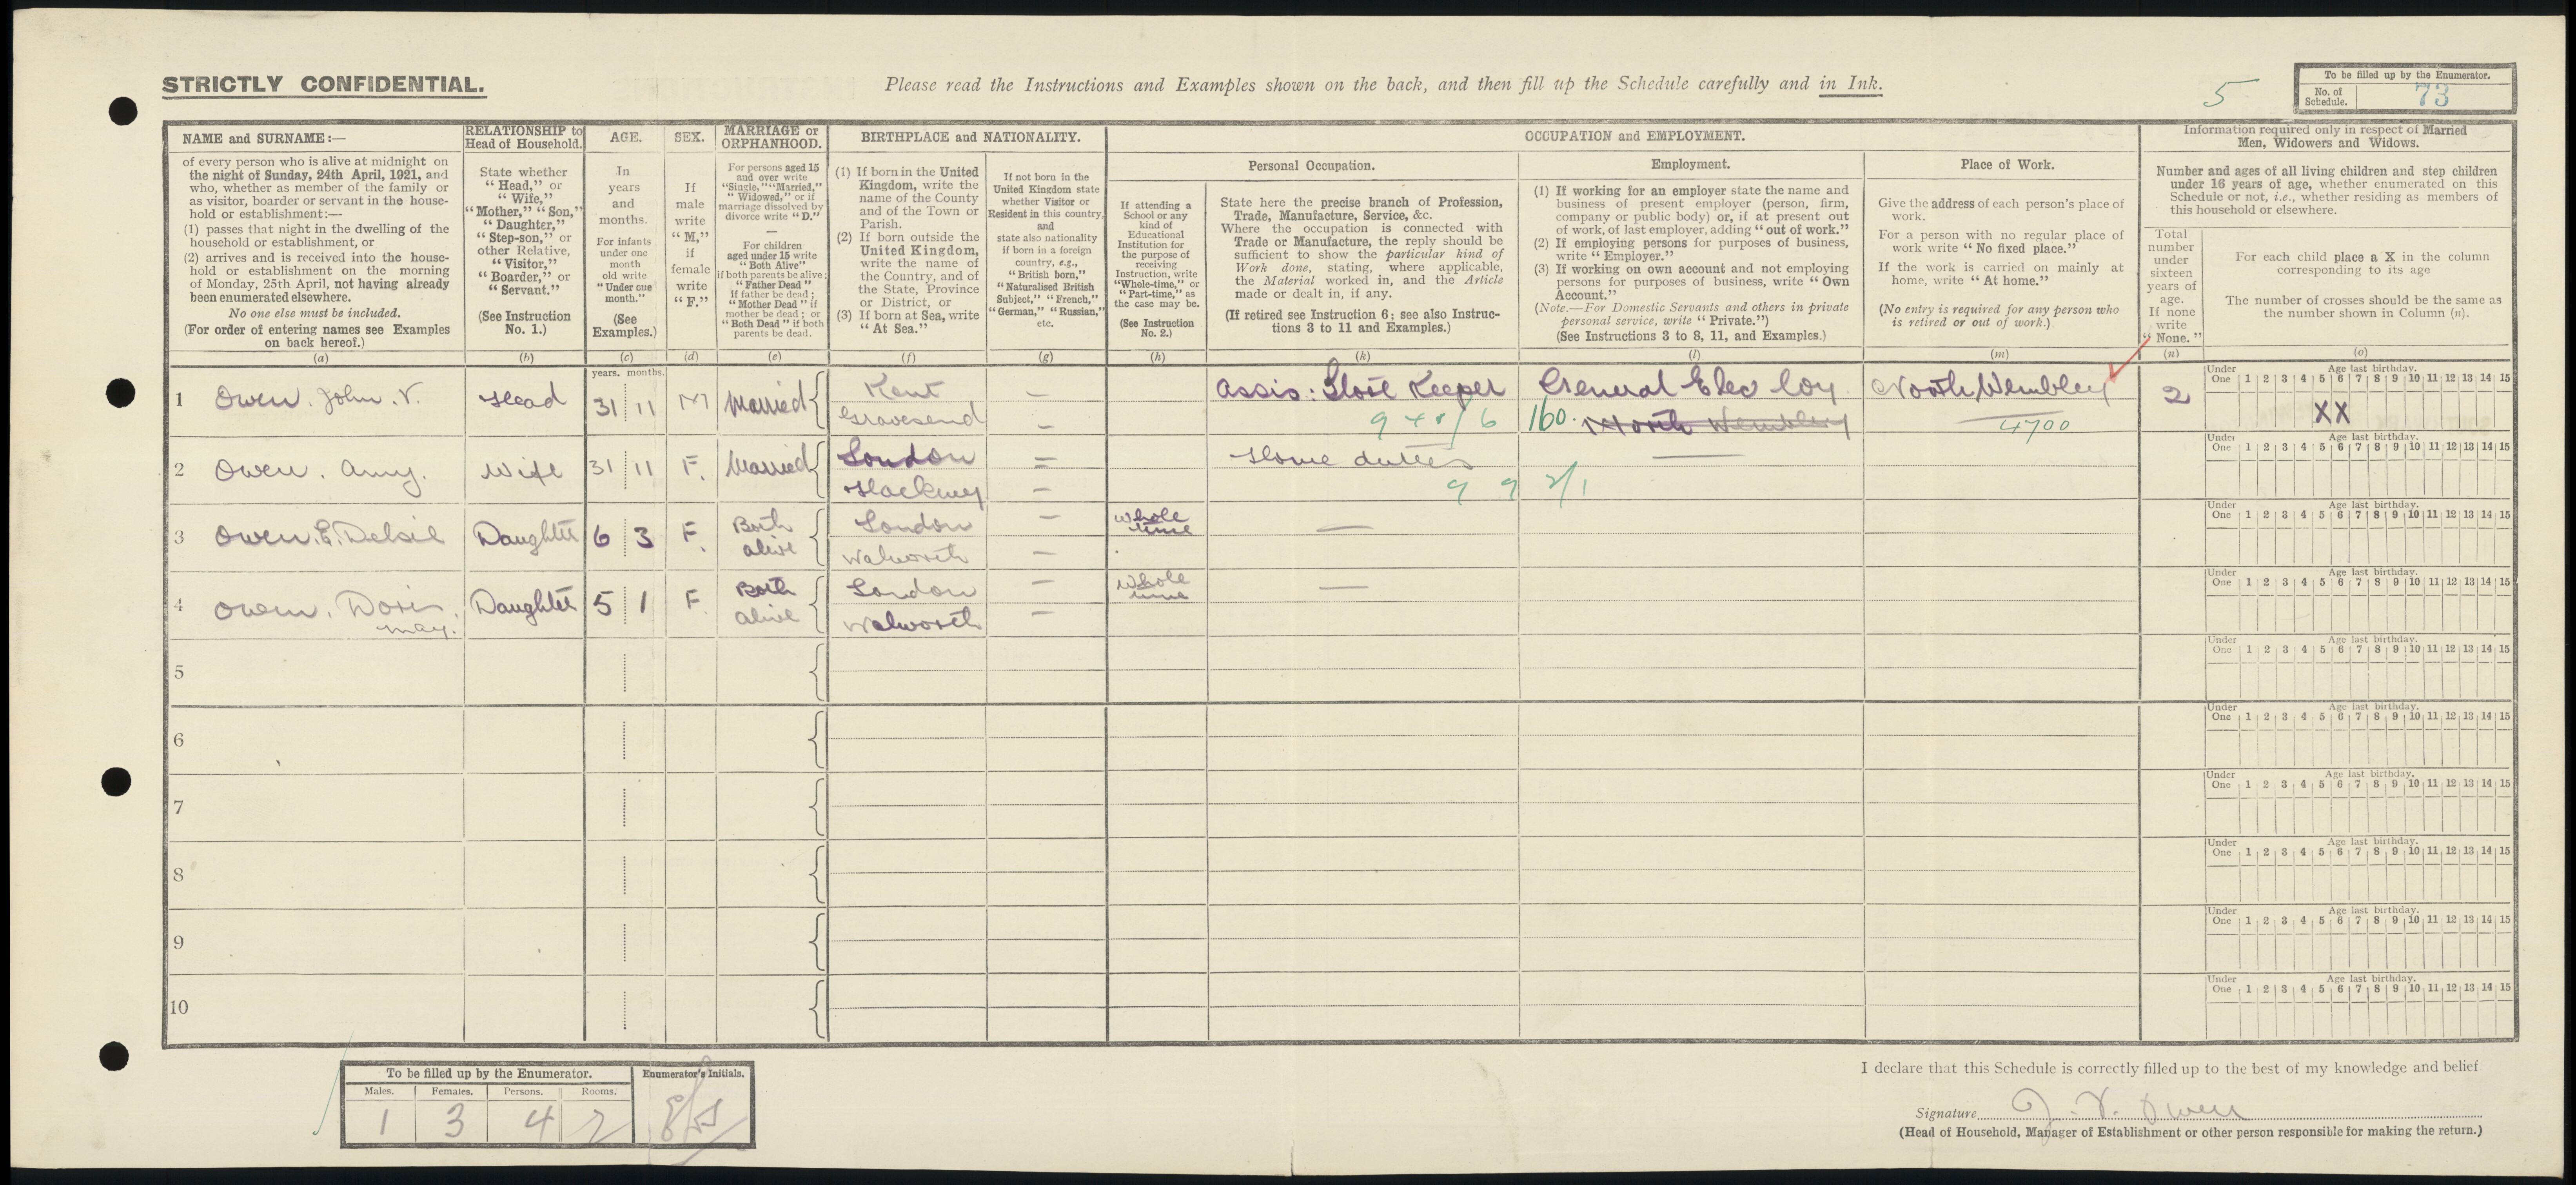 STRICTLY CONFIDENTIAL.
Please read the Instructions and Examples shown on the back, and then fill up the Schedule carefully and in Ink.
5
To be filled up by the Enumerator.
No. of Schedule. 73
NAME and SURNAME:—
of every person who is alive at midnight on
the night of Sunday, 24th April, 1921, and
who, whether as member of the family or
as visitor, boarder or servant in the house-
hold or establishment:—
(1) passes that night in the dwelling of the
household or establishment, or
(2) arrives and is received into the house-
hold or establishment on the morning
of Monday, 25th April, not having already
been enumerated elsewhere.
No one else must be included.
(For order of entering names see Examples
on back hereof.)
(a)
RELATIONSHIP to
Head of Household.
State whether
“Head,” or
“Wife,”
“Mother,” “Son,”
“Daughter,”
“Step-son,” or
other Relative,
“Visitor,”
“Boarder,” or
“Servant.”
(See Instruction
No. 1.)
(b)
AGE.
In
years
and
months.
For infants
under one
month
old write
“Under one
month.”
(See
Examples.)
(c)
SEX.
If
male
write
“M,”
if
female
write
“F.”
(d)
MARRIAGE or
ORPHANHOOD.
For persons aged 15
and over write
“Single,” “Married,”
“Widowed,” or if
marriage dissolved by
divorce write “D.”
—
For children
aged under 15 write
“Both Alive”
if both parents be alive;
“Father Dead”
if father be dead;
“Mother Dead” if
mother be dead; or
“Both Dead” if both
parents be dead.
(e)
BIRTHPLACE and NATIONALITY.
(1) If born in the United
Kingdom, write the
name of the County
and of the Town or
Parish.
(2) If born outside the
United Kingdom,
write the name of
the Country, and of
the State, Province
or District, or
(3) If born at Sea, write
“At Sea.”
(f)
If not born in the
United Kingdom state
whether Visitor or
Resident in this country,
and
state also nationality
if born in a foreign
country, e.g.,
“British born,”
“Naturalised British
Subject,” “French,”
“German,” “Russian,”
etc.
(g)
OCCUPATION and EMPLOYMENT.
If attending a
School or any
kind of
Educational
Institution for
the purpose of
receiving
Instruction, write
“Whole-time,” or
“Part-time,” as
the case may be.
(See Instruction
No. 2.)
(h)
Personal Occupation.
State here the precise branch of Profession,
Trade, Manufacture, Service, &c.
Where the occupation is connected with
Trade or Manufacture, the reply should be
sufficient to show the particular kind of
Work done, stating, where applicable,
the Material worked in, and the Article
made or dealt in, if any.
(If retired see Instruction 6; see also Instruc-
tions 3 to 11 and Examples.)
(k)
Employment.
(1) If working for an employer state the name and
business of present employer (person, firm,
company or public body) or, if at present out
of work, of last employer, adding “out of work.”
(2) If employing persons for purposes of business,
write “Employer.”
(3) If working on own account and not employing
persons for purposes of business, write “Own
Account.”
(Note.—For Domestic Servants and others in private
personal service, write “Private.”)
(See Instructions 3 to 8, 11, and Examples.)
(l)
Place of Work.
Give the address of each person's place of
work.
For a person with no regular place of
work write “No fixed place.”
If the work is carried on mainly at
home, write “At home.”
(No entry is required for any person who
is retired or out of work.)
(m)
Information required only in respect of Married
Men, Widowers and Widows.
Number and ages of all living children and step children
under 16 years of age, whether enumerated on this
Schedule or not, i.e., whether residing as members of
this household or elsewhere.
Total
number
under
sixteen
years of
age.
If none
write
“None.”
(n)
For each child place a X in the column
corresponding to its age
The number of crosses should be the same as
the number shown in Column (n).
(o)
years. months.
1 Owen. John. V. Head 31 11 M Married Kent — Assis: Store Keeper General Elec Coy North Wembley 2
Gravesend — 940/6 160. North Wembley 4700
Under One Age last birthday. 1 2 3 4 5 6 7 8 9 10 11 12 13 14 15
XX
2 Owen. Amy. Wife 31 11 F. Married London — Home duties —
Hackney — 9 9 2/1
Under One Age last birthday. 1 2 3 4 5 6 7 8 9 10 11 12 13 14 15
3 Owen. E. Delsie Daughter 6 3 F. Both alive London — Whole time —
Walworth —
Under One Age last birthday. 1 2 3 4 5 6 7 8 9 10 11 12 13 14 15
4 Owen. Doris May. Daughter 5 1 F. Both alive London — Whole time —
Walworth —
Under One Age last birthday. 1 2 3 4 5 6 7 8 9 10 11 12 13 14 15
5
Under One Age last birthday. 1 2 3 4 5 6 7 8 9 10 11 12 13 14 15
6
Under One Age last birthday. 1 2 3 4 5 6 7 8 9 10 11 12 13 14 15
7
Under One Age last birthday. 1 2 3 4 5 6 7 8 9 10 11 12 13 14 15
8
Under One Age last birthday. 1 2 3 4 5 6 7 8 9 10 11 12 13 14 15
9
Under One Age last birthday. 1 2 3 4 5 6 7 8 9 10 11 12 13 14 15
10
Under One Age last birthday. 1 2 3 4 5 6 7 8 9 10 11 12 13 14 15
To be filled up by the Enumerator.
Males. Females. Persons. Rooms.
1 3 4 2
Enumerator's Initials.
I declare that this Schedule is correctly filled up to the best of my knowledge and belief
Signature J. V. Owen
(Head of Household, Manager of Establishment or other person responsible for making the return.)